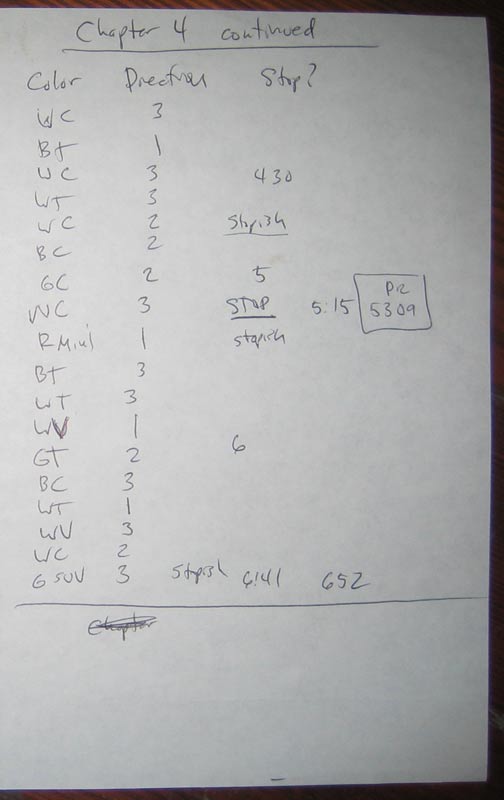 Chapter 4 continued
Color Direction Stop?
WC 3
BT 1
WC 3 430
WT 3
WC 2 Stopish
BC 2
GC 2 5
WC 3 STOP 5:15 Pic 5309
R Mini 1 stopish
BT 3
WT 3
WV 1
GT 2 6
BC 3
WT 1
WV 3
WC 2
G SUV 3 Stopish 6:41 652
Chapter